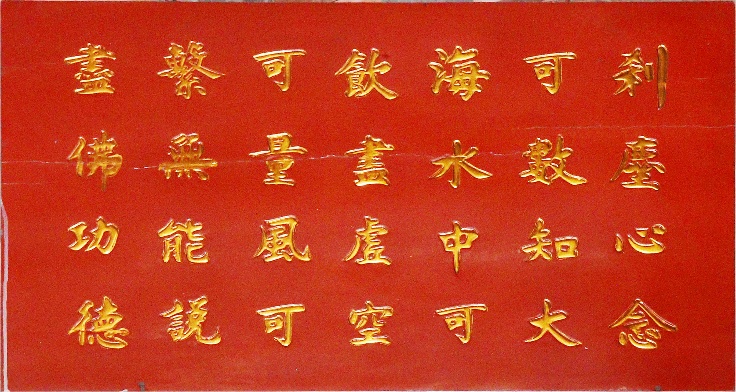 刹塵心念
可數知大
海水中可
飲盡虛空
可量風可
繫無能說
盡佛功德